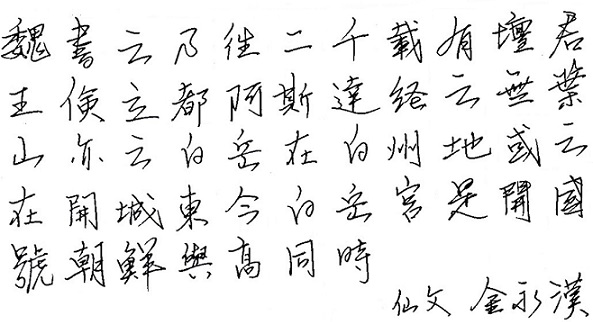 魏書云乃往二千載有壇君
王倹立都阿斯達経云無葉
山亦云白岳在白州地或云
在開城東今白岳宮是開國
號朝鮮與高同時
仙文 金永漢